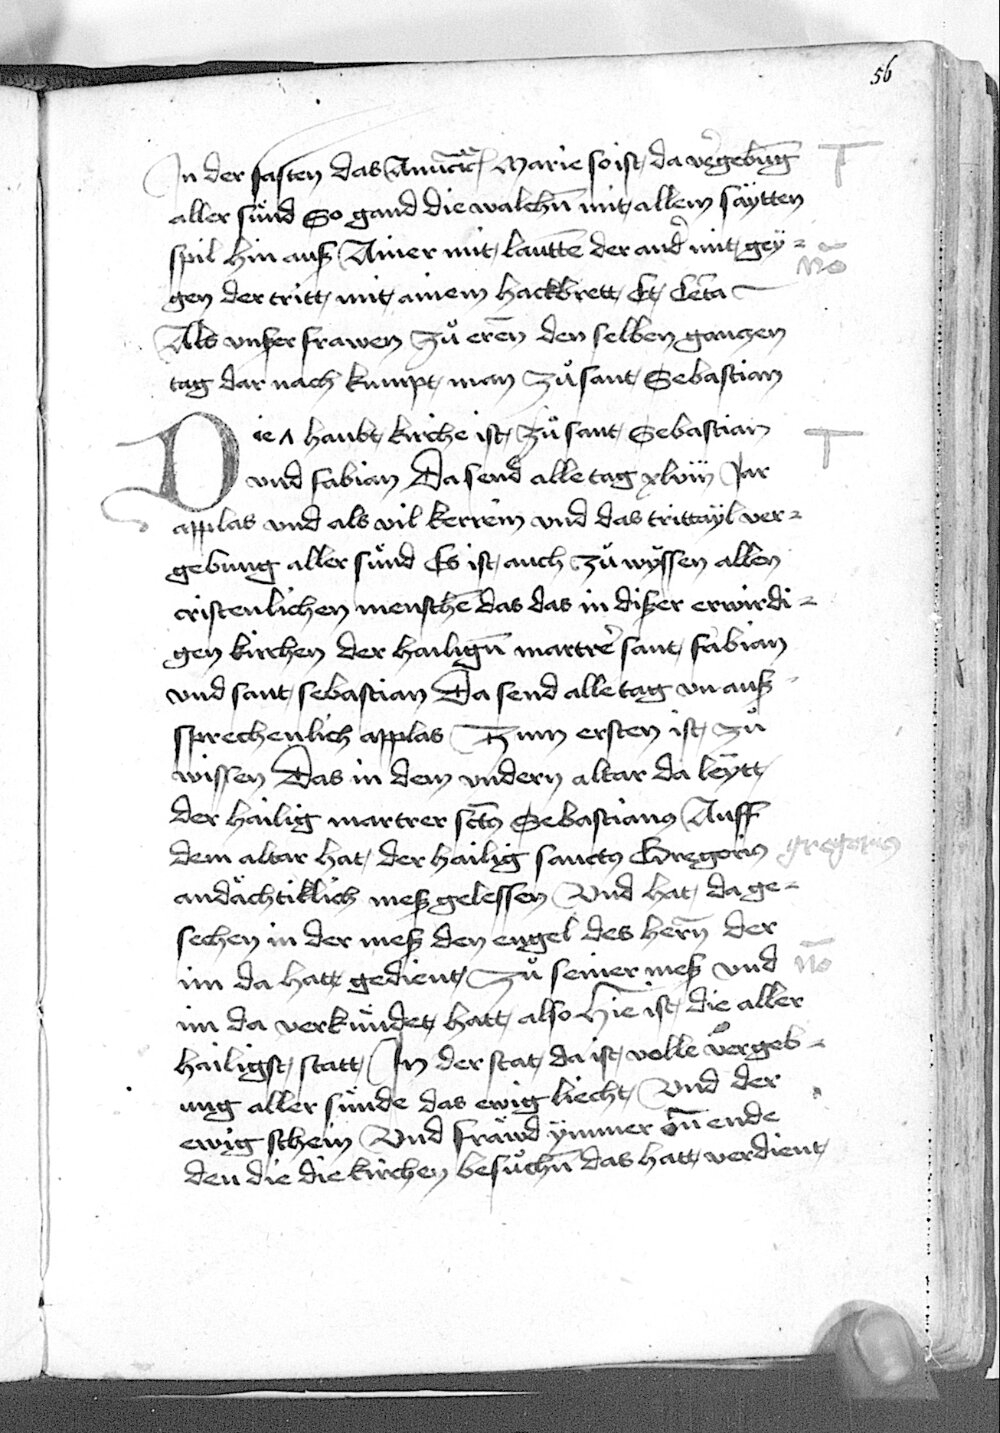 56
In der fasten das Anũc̃ic̃ Marie so ist da v̉gebũg
aller sünd So gand die walchñ mit allem säytten
spil hin auß Ainer mit lautte der and̉ mit gey=
gen der tritt mit ainem hackbrett Et Cet̉a
Als vnßer frawen zů eren̄ den selben ganczen
tag dar nach kumpt man zů sant Sebastian
Die haubt kirche ist zů sant Sebastian
vnd fabian Da send alle tag xlviij Jar
applas vnd als vil kerrein vnd das trittäyl ver=
gebung aller sünd Es ist auch zů wyssen allen
cristenlichen mensche das das in dißer erwirdi=
gen kirchen der hailigñ martrer̉ sant fabian
vnd sant sebastian Da send alle tag vn auß
sprechenlich applas Zum ersten ist zů
wissen Das in dem vndern altar da leytt
der hailig martrer sct̃us Sebastianus Auff
dem altar hat der hailig sanctus Gregorius
andächtiklich meß gelessen Vnd hat da ge=
sechen in der meß den engel des hern̄ der
im da hatt gedient zů seiner meß vnd
im da verkündet hatt also Hie ist die aller
hailigst statt In der stat da ist volle vergeb=
ung aller sünde das ewig liecht Vnd der
ewig schein Vnd fräwd ymmer on̄ ende
den die die kirchen besůchñ das hatt verdient
T
No̅
T
gregorius
No̅